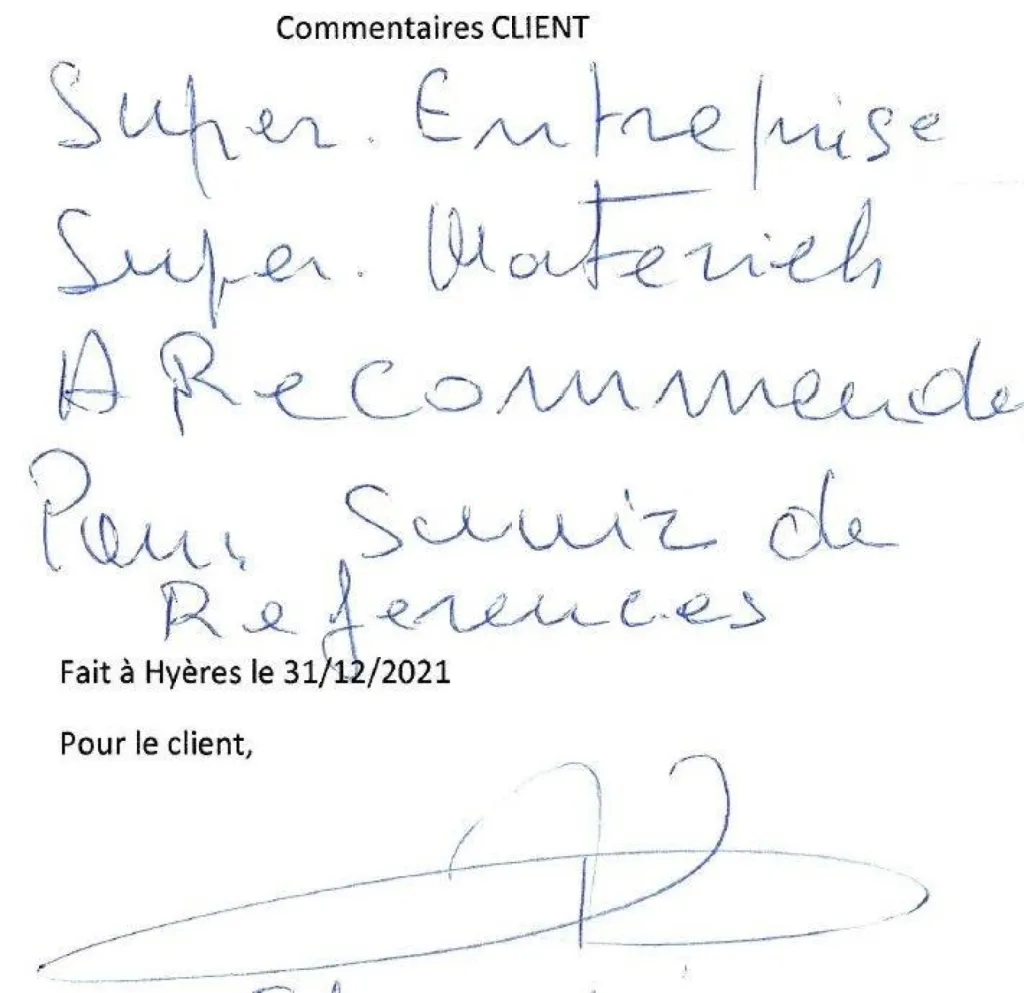 Commentaires CLIENT
Super. Entreprise
Super. Materiels
A Recommende
Pour Servir de
References
Fait à Hyères le 31/12/2021
Pour le client,